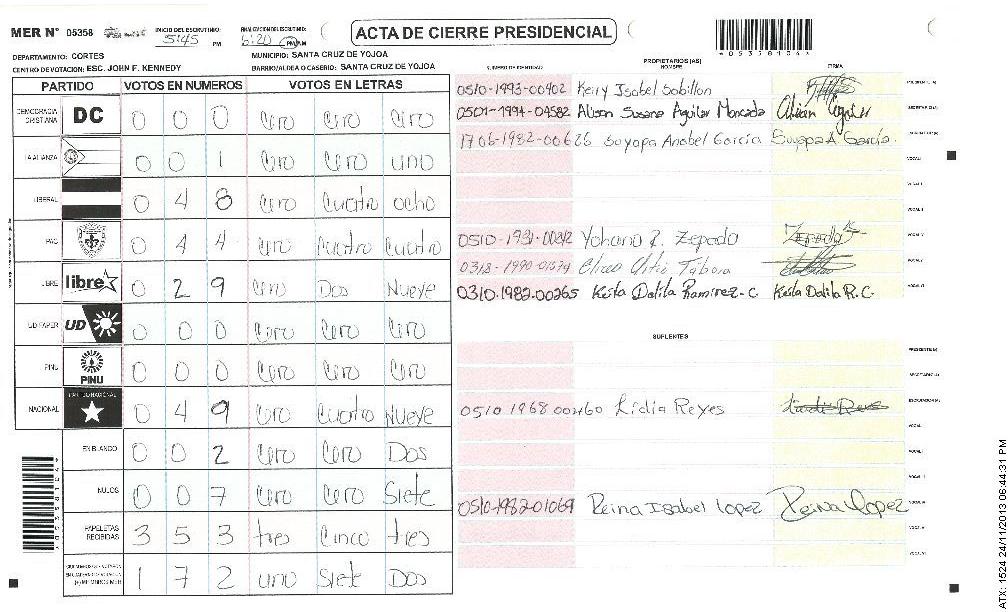 MER N° 05358 INICIO DEL ESCRUTINIO: 5:45 PM FINALIZACION DEL ESCRUTINIO: 6:20 PM ACTA DE CIERRE PRESIDENCIAL
DEPARTAMENTO: CORTES MUNICIPIO: SANTA CRUZ DE YOJOA
CENTRO DE VOTACION: ESC. JOHN F. KENNEDY BARRIO/ALDEA O CASERIO: SANTA CRUZ DE YOJOA
PARTIDO VOTOS EN NUMEROS VOTOS EN LETRAS
DEMOCRACIA CRISTIANA DC 0 0 0 Cero Cero Cero
LA ALIANZA 0 0 1 Cero Cero uno
LIBERAL 0 4 8 Cero Cuatro ocho
PAC 0 4 4 Cero Cuatro Cuatro
LIBRE libre 0 2 9 Cero Dos Nueve
UD FAPER UD 0 0 0 Cero Cero Cero
PINU PINU 0 0 0 Cero Cero Cero
NACIONAL PARTIDO NACIONAL 0 4 9 Cero Cuatro Nueve
EN BLANCO 0 0 2 Cero Cero Dos
NULOS 0 0 7 Cero Cero Siete
PAPELETAS RECIBIDAS 3 5 3 tres Cinco tres
1 7 2 uno Siete Dos
NUMERO DE IDENTIDAD PROPIETARIOS (AS) NOMBRE FIRMA
0510-1993-00402 Keiry Isabel Sabillon
0501-1994-04582 Alison Susana Aguilar Moncada
1706-1982-00626 Suyapa Anabel García Suyapa A García
Yohana R. Zepeda Zepeda
0318-1990-01679
0310-1982-00265 Keila Dalila Ramirez-C Keila Dalila R.C.
SUPLENTES
0510 1968 00460 Lidia Reyes
0510-1982-01069 Reina Isabel Lopez Reina Lopez
ATX: 1524 24/11/2013 06:44:31 PM